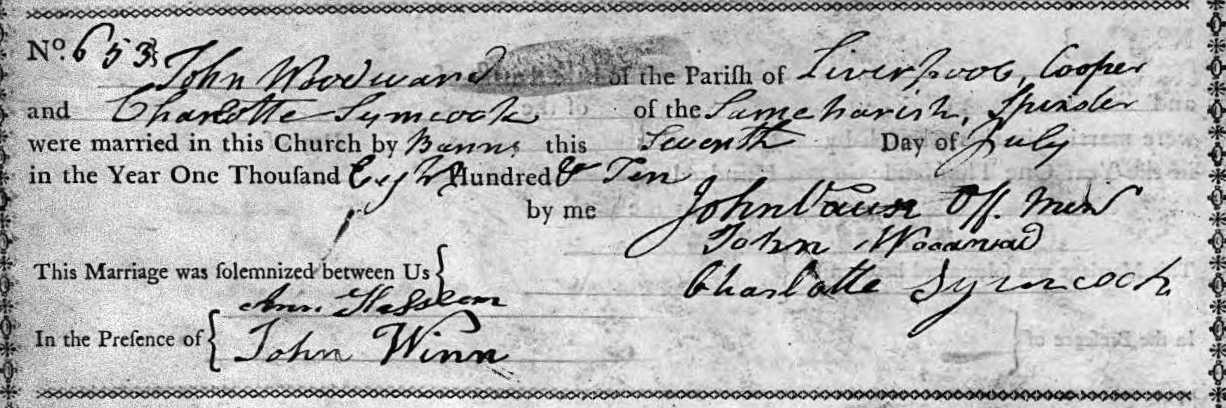 No. 653 John Woodward of the Pariſh of Liverpool, Cooper
and Charlotte Symcock of the Same Parish, Spinster
were married in this Church by Banns this Seventh Day of July
in the Year One Thouſand Eight Hundred & Ten
by me John Vause Off. Minr
This Marriage was ſolemnized between Us { John Woodward
Charlotte Symcock
In the Preſence of { Ann Haslem
John Winn